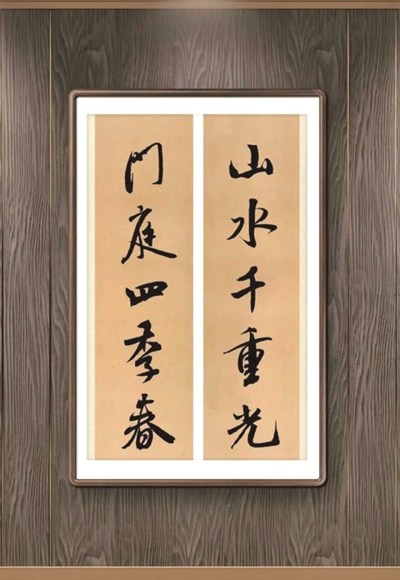 山水千重光
門庭四季春